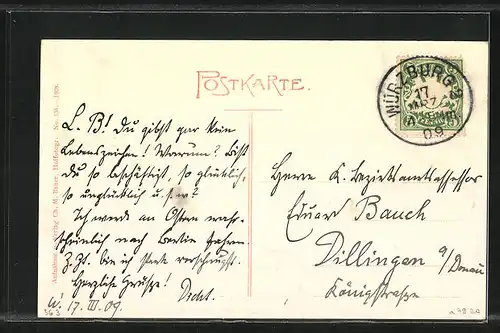 POSTKARTE.
WÜRZBURG 2
17
MRZ
09
L. B! Du gibst gar kein
Lebenszeichen! Warum? Bist
Du so beschäftigt, so glücklich,
so unglücklich u.s.w?
Ich werde an Ostern wahr-
scheinlich nach Berlin fahren.
Z. Zt. bin ich stark verschnupft.
Herzliche Grüsse!
W. 17. III. 09.
Herrn K. Bezirksamtsassessor
Eduard Bauch
Dillingen a/Donau
Königstrasse